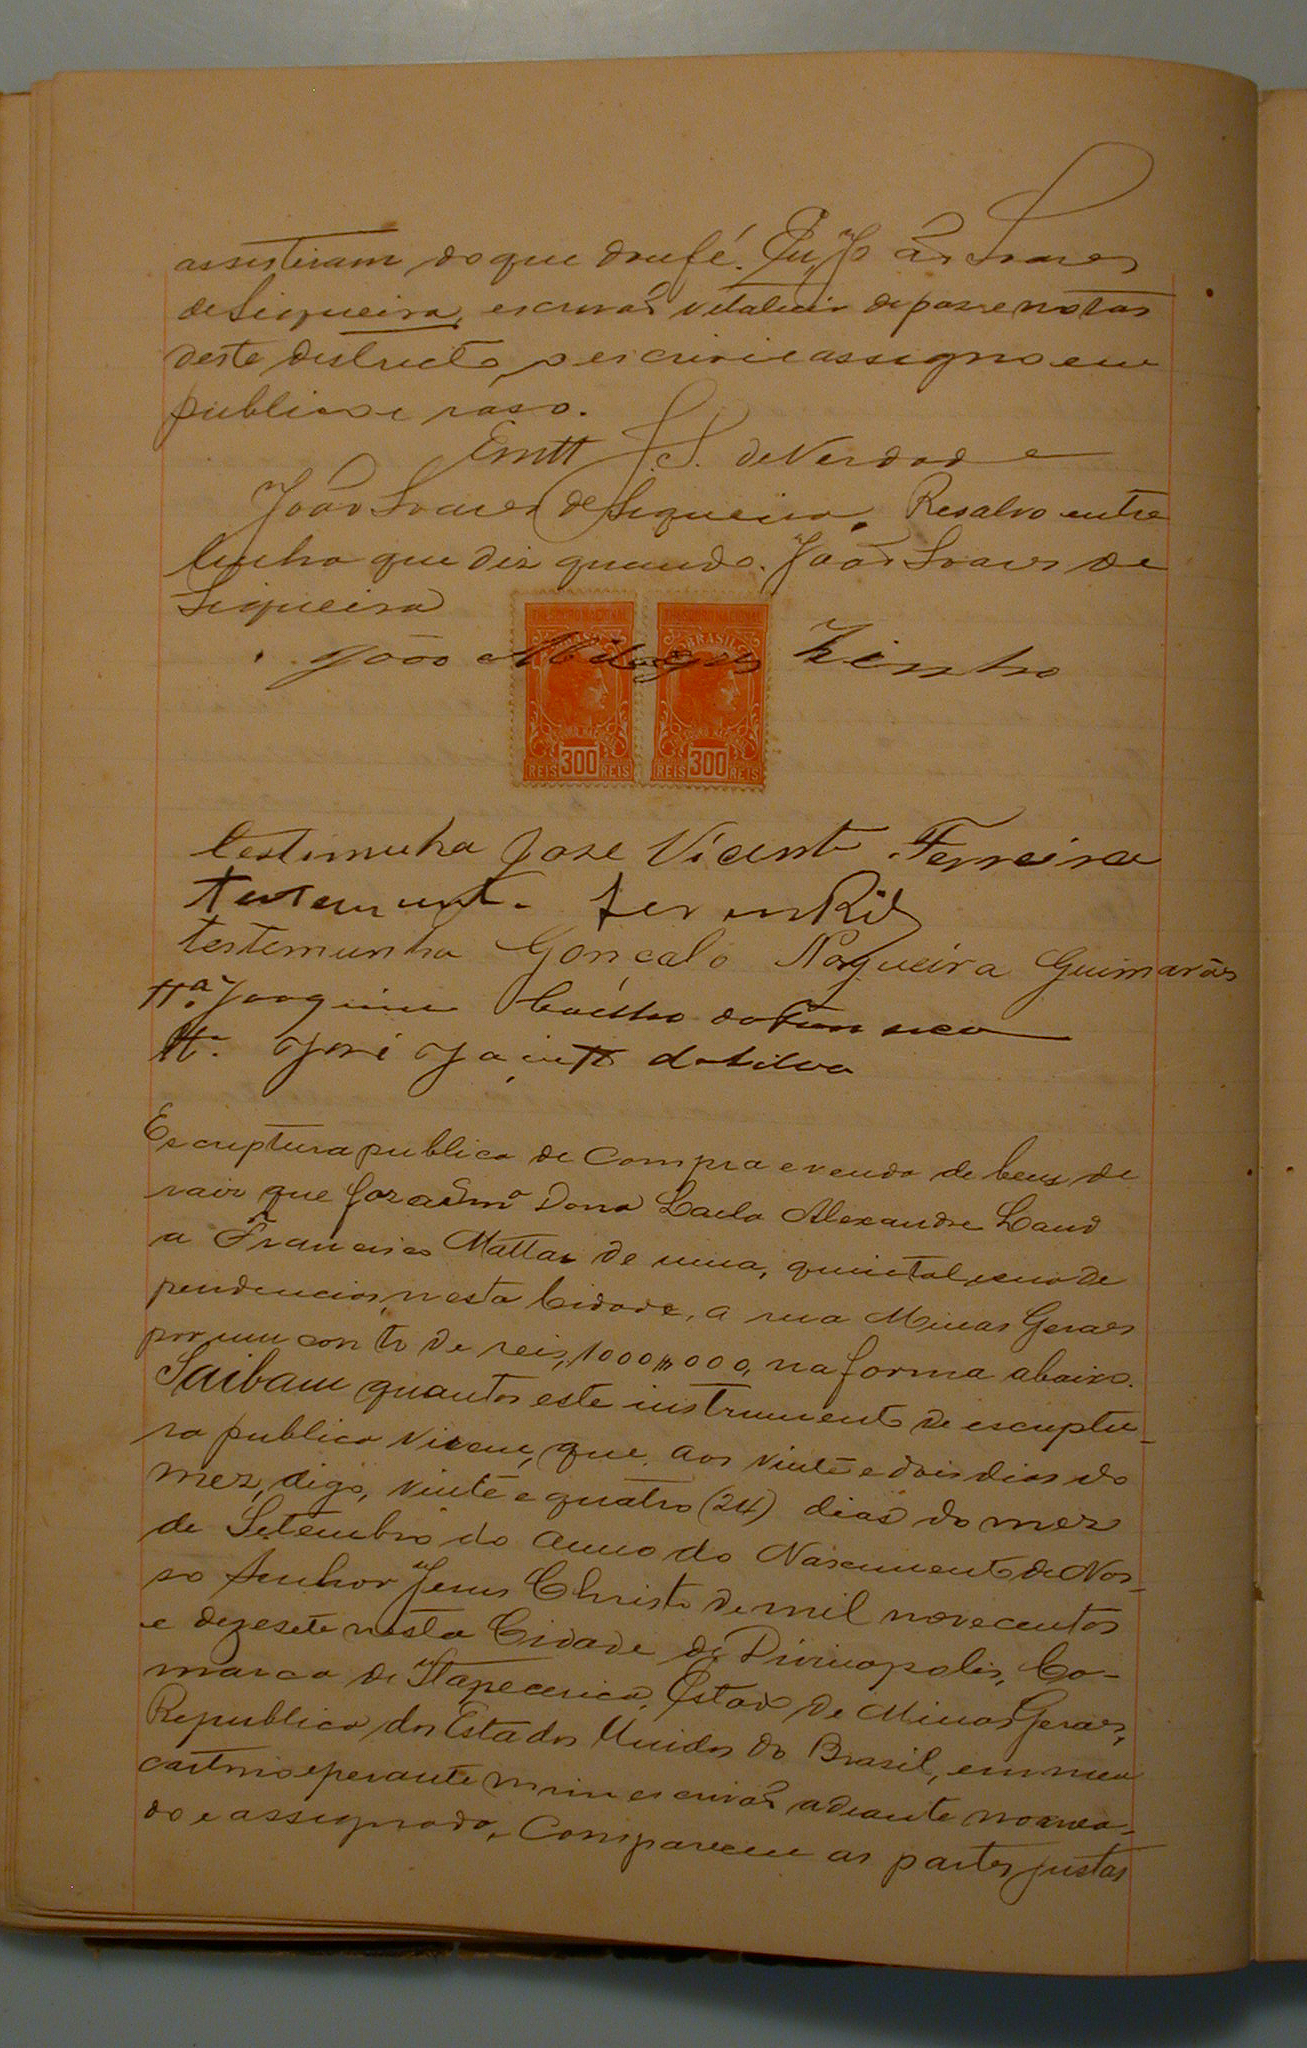 assistiram do que dou fé. Eu, João Soares
de Siqueira, escrivão vitalicio de paz e notas
deste districto, o escrivi e assigno em
publico e raso.
Em tt J.S. de Verdade
João Soares de Siqueira. Resalvo entre
linha que diz quando. João Soares de
Siqueira
THESOURO NACIONAL THESOURO NACIONAL
BRASIL BRASIL
João Zinho
THESOURO NACIONAL THESOURO NACIONAL
REIS 300 REIS REIS 300 REIS
testimunha Jose Vicente Ferreira
testemunha
testemunha Gonçalo Nogueira Guimarães
tt.ª Joaquim Coelho da Fonseca
tt. José Jacintho da Silva
Escriptura publica de compra e venda de bens de
raiz que faz a Exmª Dona Laila Alexandre Laud
a Francisco Mattar de uma, quintal e suas de
pendencias, nesta Cidade, a rua Minas Geraes
por um conto de reis, 1000$000, na forma abaixo.
Saibam quantos este instrumento de escriptu-
ra publica virem, que, aos vinte e dois dias do
mez, digo, vinte e quatro (24) dias do mez
de Setembro do anno do Nascimento de Nos-
so Senhor Jesus Christo de mil novecentos
e dezesete nesta Cidade de Divinopolis, Co-
marca de Itapecerica, Estado de Minas Geraes,
Republica dos Estados Unidos do Brasil, em meu
cartorio e perante mim escrivão adeante nomea-
do e assignado, comparecem as partes justas